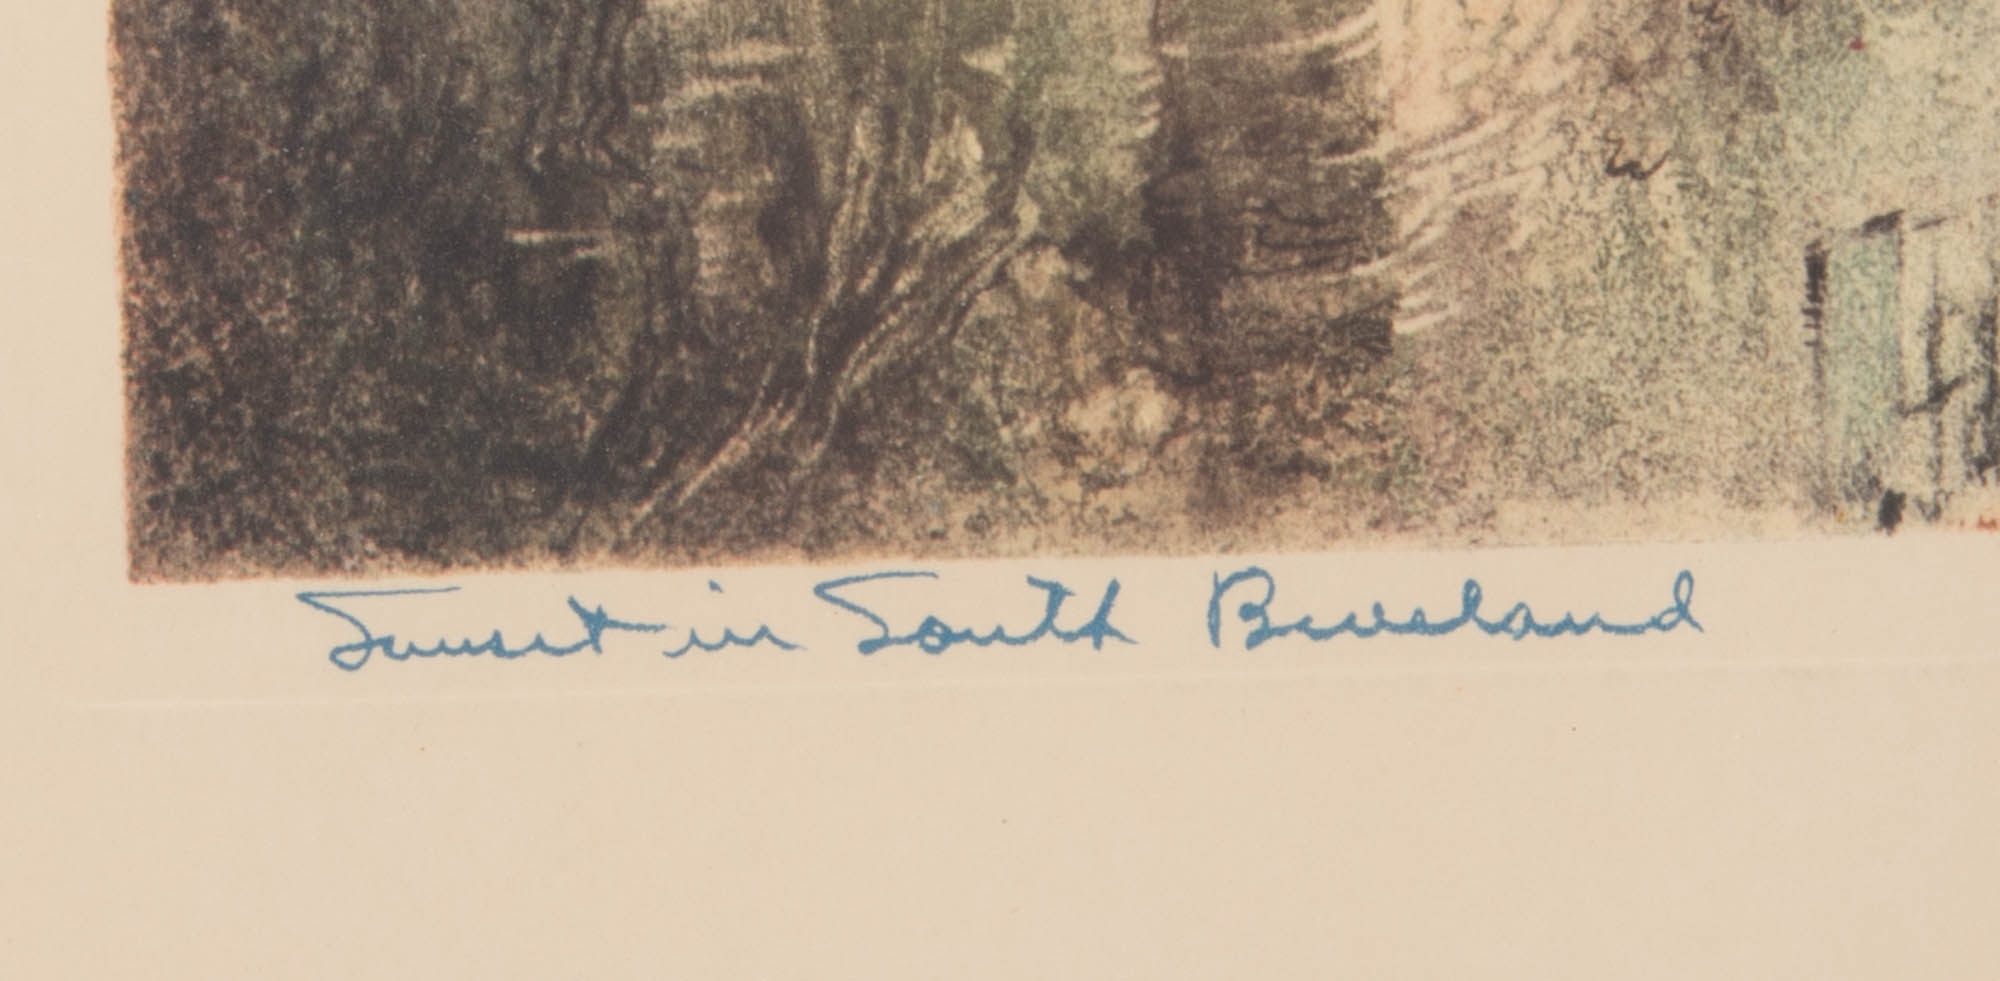 Sunset in South Beveland